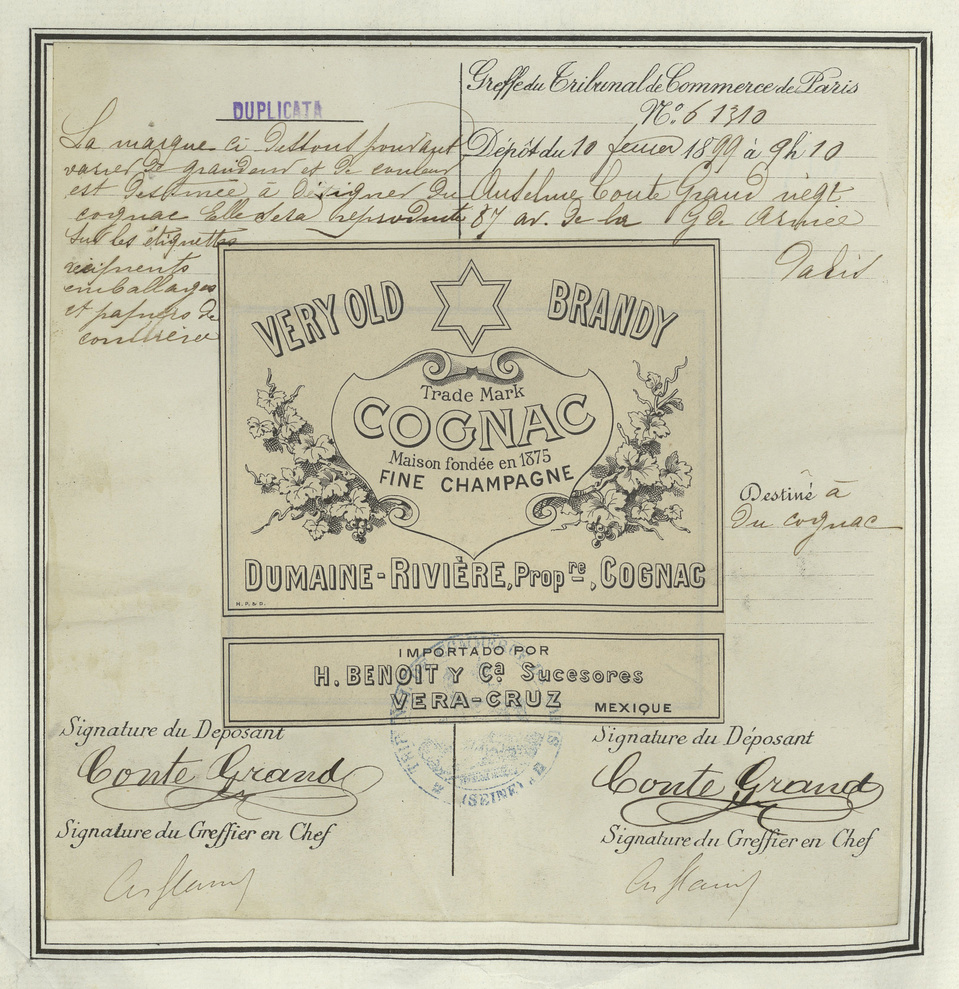 DUPLICATA
La marque ci dessous pouvant
varier de grandeur et de couleur
est destinée à désigner du
cognac Elle sera reproduite
sur les étiquettes
récipients
emballages
et papiers de
commerce
Greffe du Tribunal de Commerce de Paris
No. 6 1310
Dépôt du 10 fevrier 1899 à 9h 10
Anselme Conte Grand négt
87 av. de la Gde Armée
Paris
VERY OLD BRANDY
Trade Mark
COGNAC
Maison fondée en 1875
FINE CHAMPAGNE
DUMAINE-RIVIÈRE, Propre, COGNAC
H.P.& D.
Destiné à
du cognac
IMPORTADO POR
H. BENOIT Y Ca. Sucesores
VERA-CRUZ MEXIQUE
TRIBUNAL DE COMMERCE
(SEINE)
Signature du Déposant
Conte Grand
Signature du Greffier en Chef
Signature du Déposant
Conte Grand
Signature du Greffier en Chef